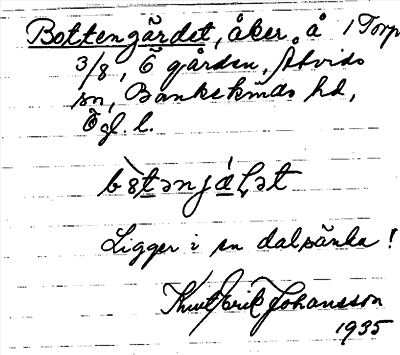 Bottengärdet, åker, å 1 Torp
3/8, Ö gården, Åtvids
sn, Bankekinds hd,
Ögl. l.
Ligger i en dalsänka!
Knut Erik Johansson
1935